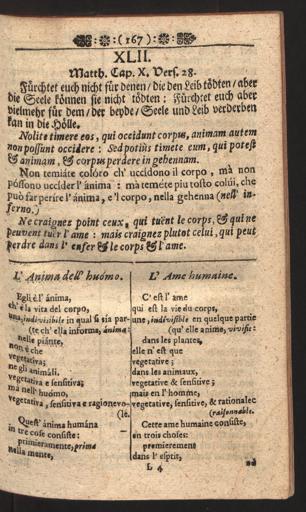 :(167):
XLII.
Matth. Cap. X. Vers. 28.
Fürchtet euch nicht für denen / die den Leib tödten / aber
die Seele können sie nicht tödten: Fürchtet euch aber
vielmehr für dem / der beyde / Seele und Leib verderben
kan in die Hölle.
Nolite timere eos, qui occidunt corpus, animam autem
non possunt occidere: Sed potiùs timete eum, qui potest
& animam, & corpus perdere in gehennam.
Non temiáte colóro ch' uccidono il corpo, mà non
póssono uccider l' ánima: mà teméte piu tosto colúi, che
può far perire l' ánima, e 'l corpo, nella gehenna (nell' in-
ferno.)
Ne craignez point ceux, qui tuënt le corps, & qui ne
peuvent tuër l' ame: mais craignez plutot celui, qui peut
perdre dans l' enfer & le corps & l' ame.
L' Anima dell' huómo.
Egli è l' ánima,
ch' è la vita del corpo,
una, indivisibile in qual si sia par-
(te ch' ella informa, ánima:
nelle piánte,
non è che
vegetativa;
ne gli animáli.
vegetativa e sensitiva;
mà nell' huómo,
vegetativa, sensitiva e ragionevo-
(le.
Quest' ánima humána
in tre cose consiste:
primieramente, prima
nella mente,
L' Ame humaine.
C' est l' ame
qui est la vie du corps,
une, indivisible en quelque partie
(qu' elle anime, vivifie:
dans les plantes,
elle n' est que
vegetative;
dans les animaux,
vegetative & sensitive;
mais en l' homme,
vegetative, sensitive, & rationalec
(raisonnable.
Cette ame humaine consiste,
en trois choses:
premierement
dans l' esprit,
L 4